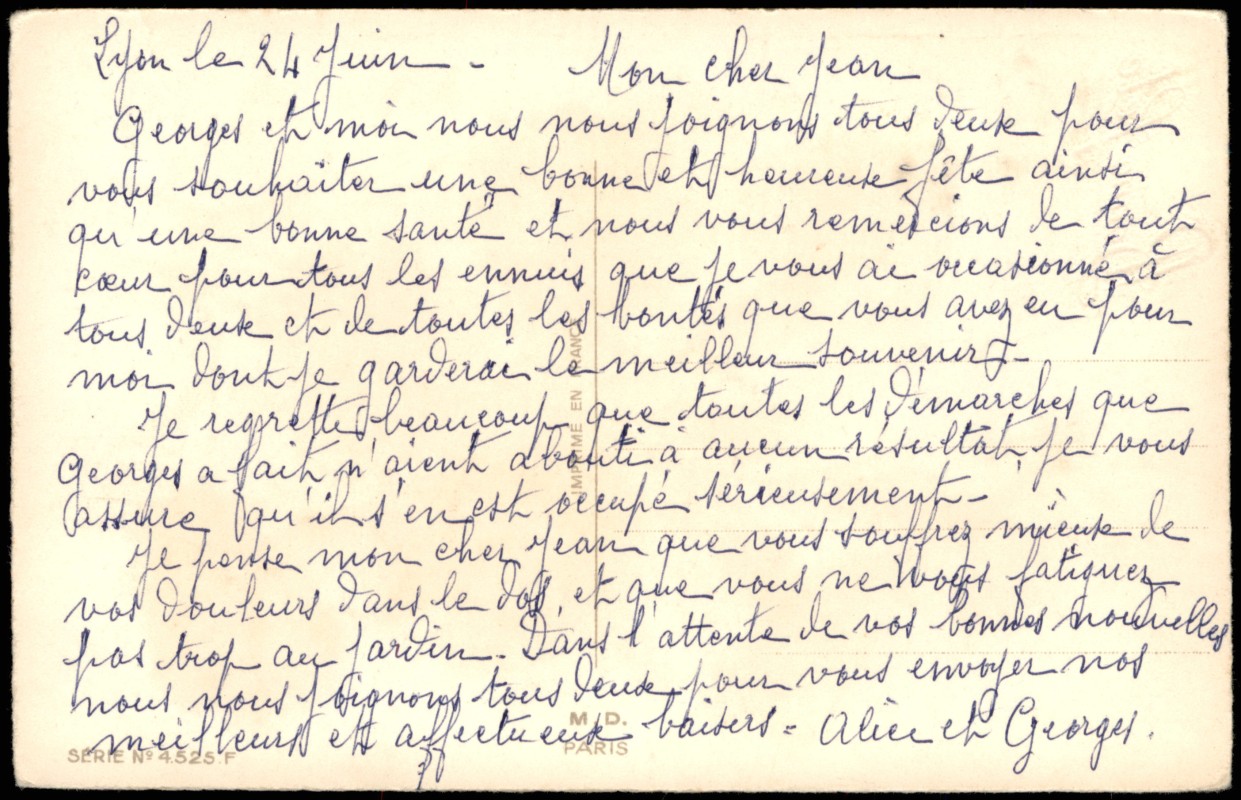 Lyon le 24 Juin - Mon cher Jean
Georges et moi nous nous joignons tous deux pour
vous souhaiter une bonne et heureuse fête ainsi
qu'une bonne santé et nous vous remercions de tout
cœur pour tous les ennuis que je vous ai occasionné à
tous deux et de toutes les bontés que vous avez eu pour
moi dont je garderai le meilleur souvenir -
Je regrette beaucoup que toutes les démarches que
Georges a fait n'aient abouti à aucun résultat, je vous
assure qu'il s'en est occupé sérieusement -
Je pense mon cher Jean que vous souffrez mieux de
vos douleurs dans le dos, et que vous ne vous fatiguez
pas trop au jardin - Dans l'attente de vos bonnes nouvelles
nous nous joignons tous deux pour vous envoyer nos
meilleurs et affectueux baisers - Alice et Georges.
IMPRIMÉ EN FRANCE
M. D.
PARIS
SÉRIE Nº 4.525.F